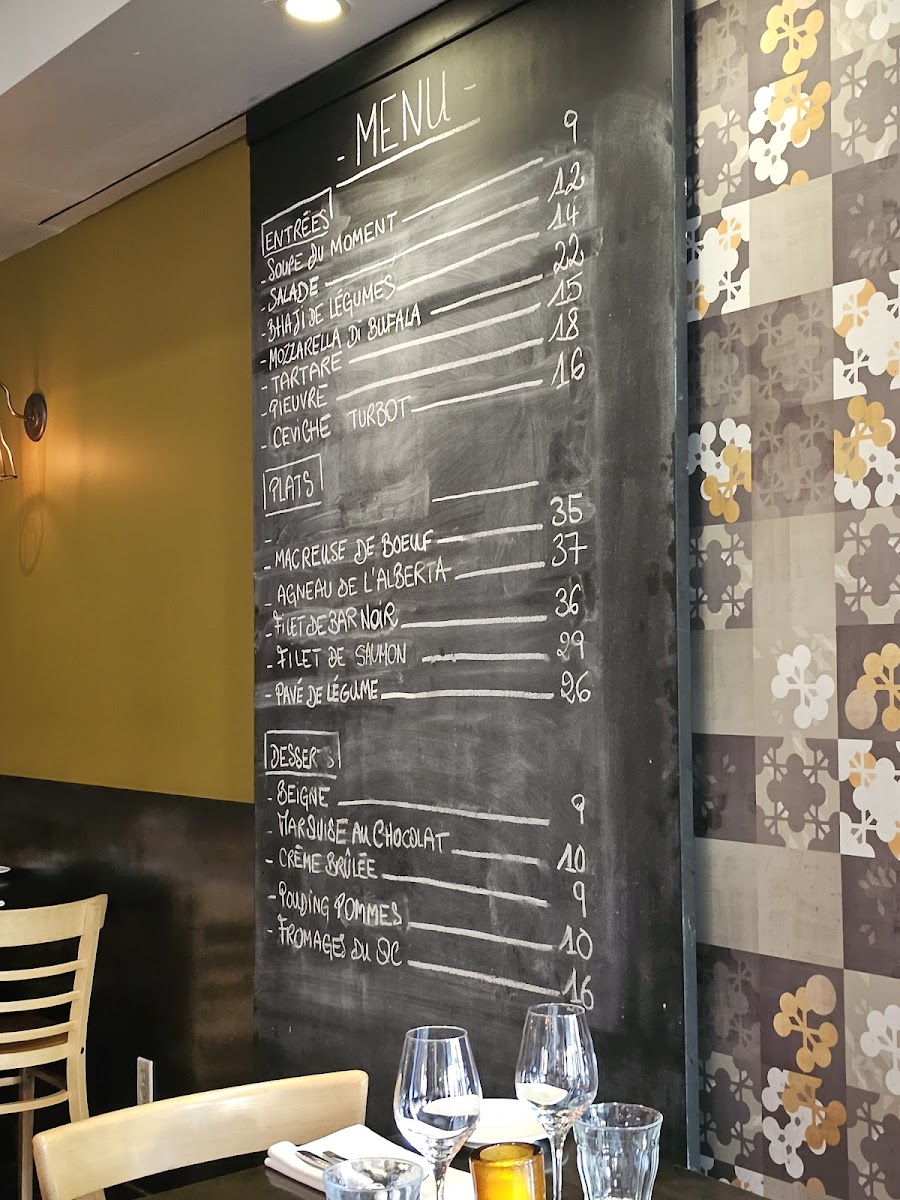 - MENU -
ENTRÉES
- SOUPE DU MOMENT 9
- SALADE 12
- BHAJI DE LÉGUMES 14
- MOZZARELLA DI BUFALA 22
- TARTARE 15
- PIEUVRE 18
- CEVICHE TURBOT 16
PLATS
-
- MACREUSE DE BOEUF 35
- AGNEAU DE L'ALBERTA 37
- FILET DE BAR NOIR 36
- FILET DE SAUMON 29
- PAVÉ DE LÉGUME 26
DESSERTS
- BEIGNE 9
- MARQUISE AU CHOCOLAT 10
- CRÈME BRÛLÉE 9
- POUDING POMMES 10
- FROMAGES DU QC 16